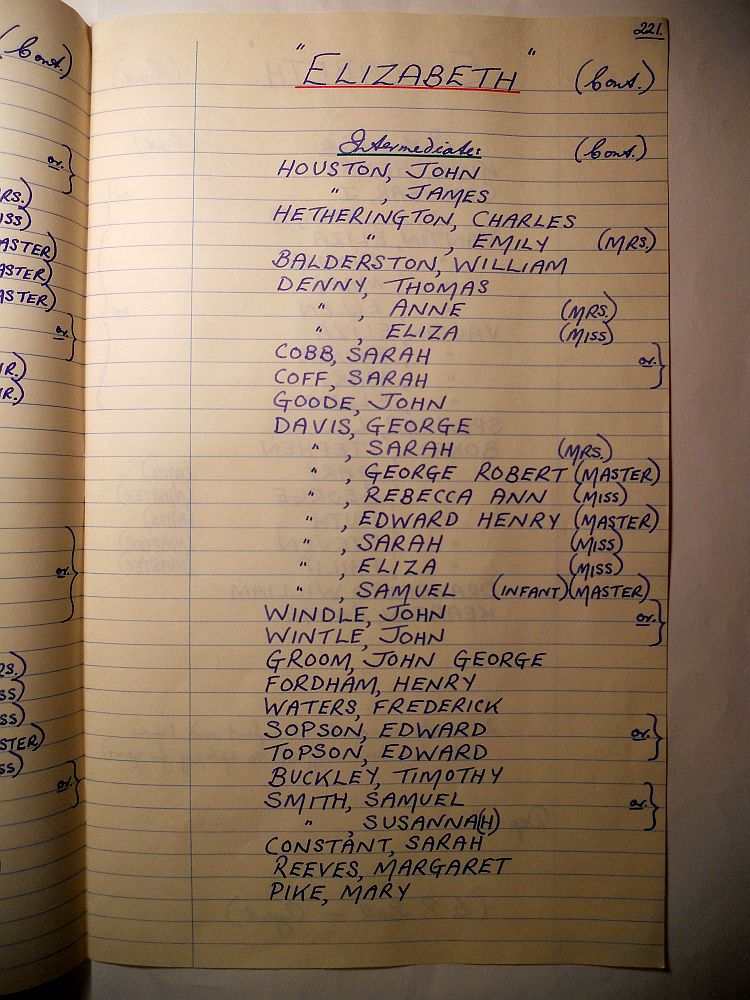 221.
(Cont.)
"ELIZABETH" (Cont.)
Intermediate: (Cont.)
HOUSTON, JOHN
" , JAMES
HETHERINGTON, CHARLES
" , EMILY (MRS.)
BALDERSTON, WILLIAM
DENNY, THOMAS
" , ANNE (MRS.)
" , ELIZA (MISS)
COBB, SARAH or.}
COFF, SARAH
GOODE, JOHN
DAVIS, GEORGE
" , SARAH (MRS.)
" , GEORGE ROBERT (MASTER)
" , REBECCA ANN (MISS)
" , EDWARD HENRY (MASTER)
" , SARAH (MISS)
" , ELIZA (MISS)
" , SAMUEL (INFANT) (MASTER)
WINDLE, JOHN or.}
WINTLE, JOHN
GROOM, JOHN GEORGE
FORDHAM, HENRY
WATERS, FREDERICK
SOPSON, EDWARD or.}
TOPSON, EDWARD
BUCKLEY, TIMOTHY
SMITH, SAMUEL or.}
" , SUSANNA(H)
CONSTANT, SARAH
REEVES, MARGARET
PIKE, MARY